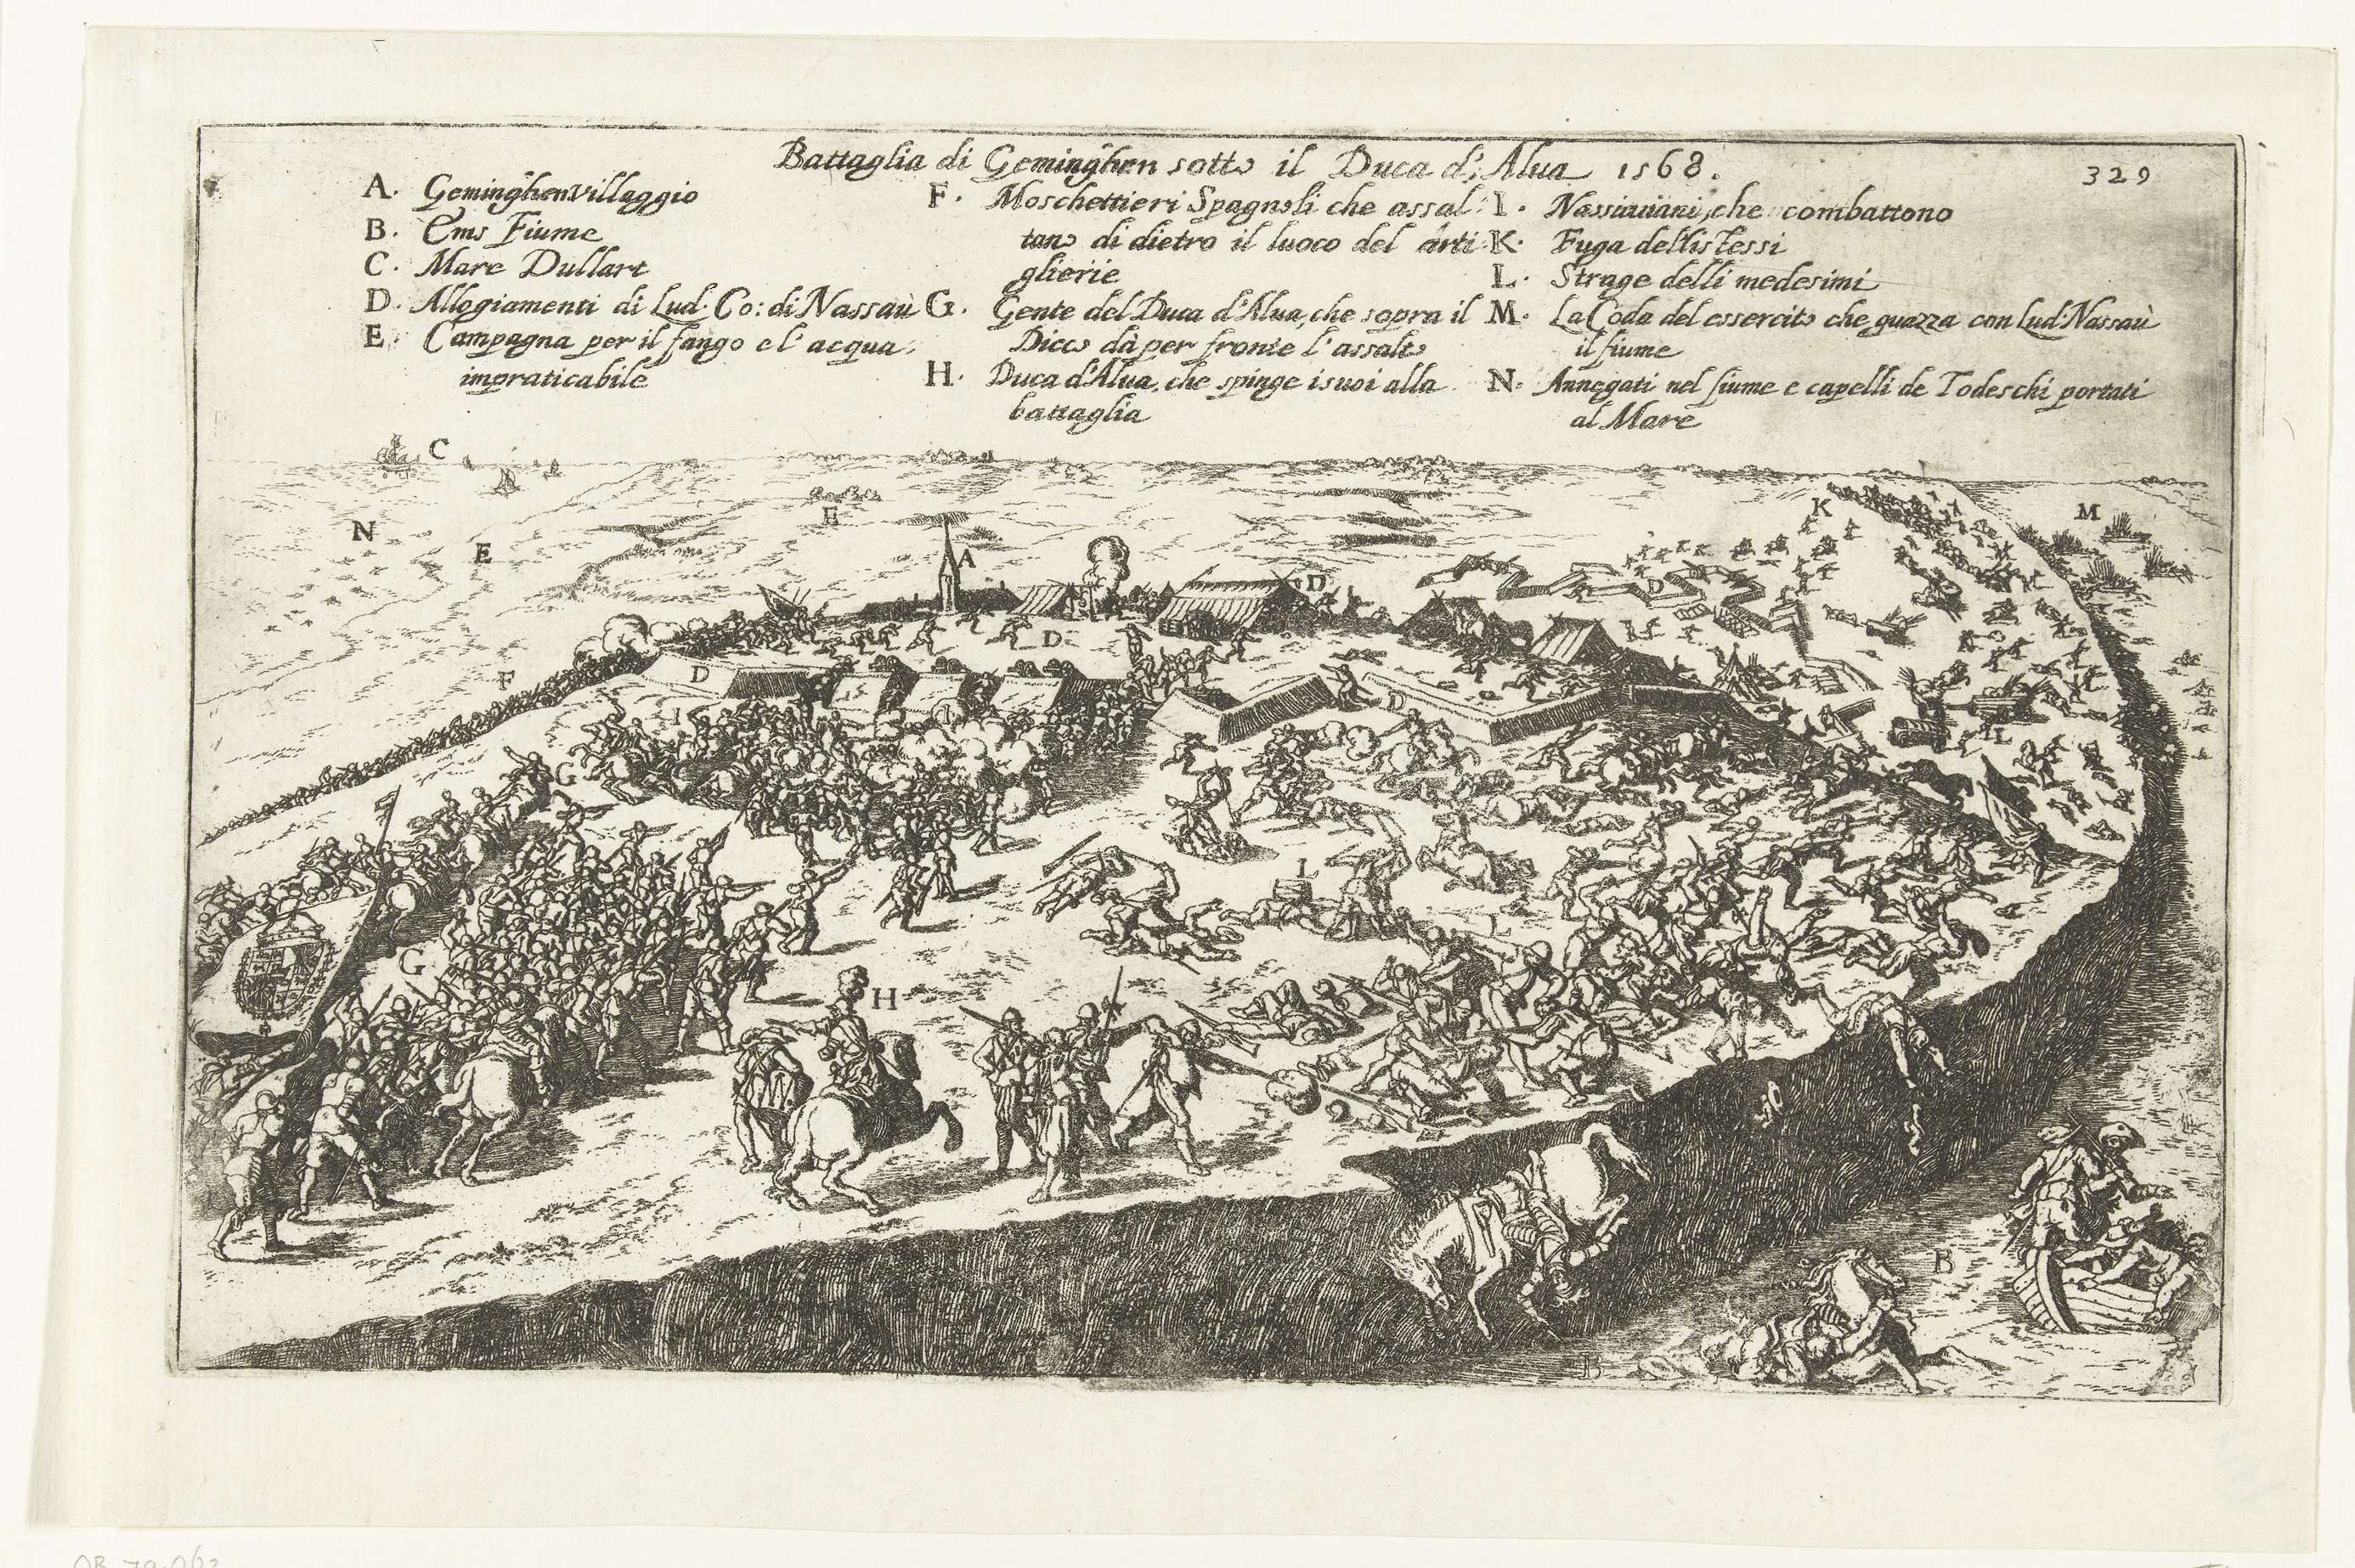 Battaglia di Geminghen sotto il Duca d'Alua 1568.
329
A. Geminghen villaggio
B. Ems Fiume
C. Mare Dullart
D. Allogiamenti di Lud. Co: di Nassaù
E. Campagna per il fango e l'acqua
impraticabile
F. Moschettieri Spagnoli che assal
tano di dietro il luoco del arti
glierie
G. Gente del Duca d'Alua, che sopra il
Dicco dà per fronte l'assalto
H. Duca d'Alua, che spinge i suoi alla
battaglia
I. Nassauiani, che combattono
K. Fuga dell'istessi
L. Strage delli medesimi
M. La Coda del essercito che guazza con Lud: Nassaù
il fiume
N. Annegati nel fiume e capelli de Todeschi portati
al Mare
C
N
E
E
K
M
A
D
D
D
F
D
I
I
D
G
L
L
L
G
H
B
B